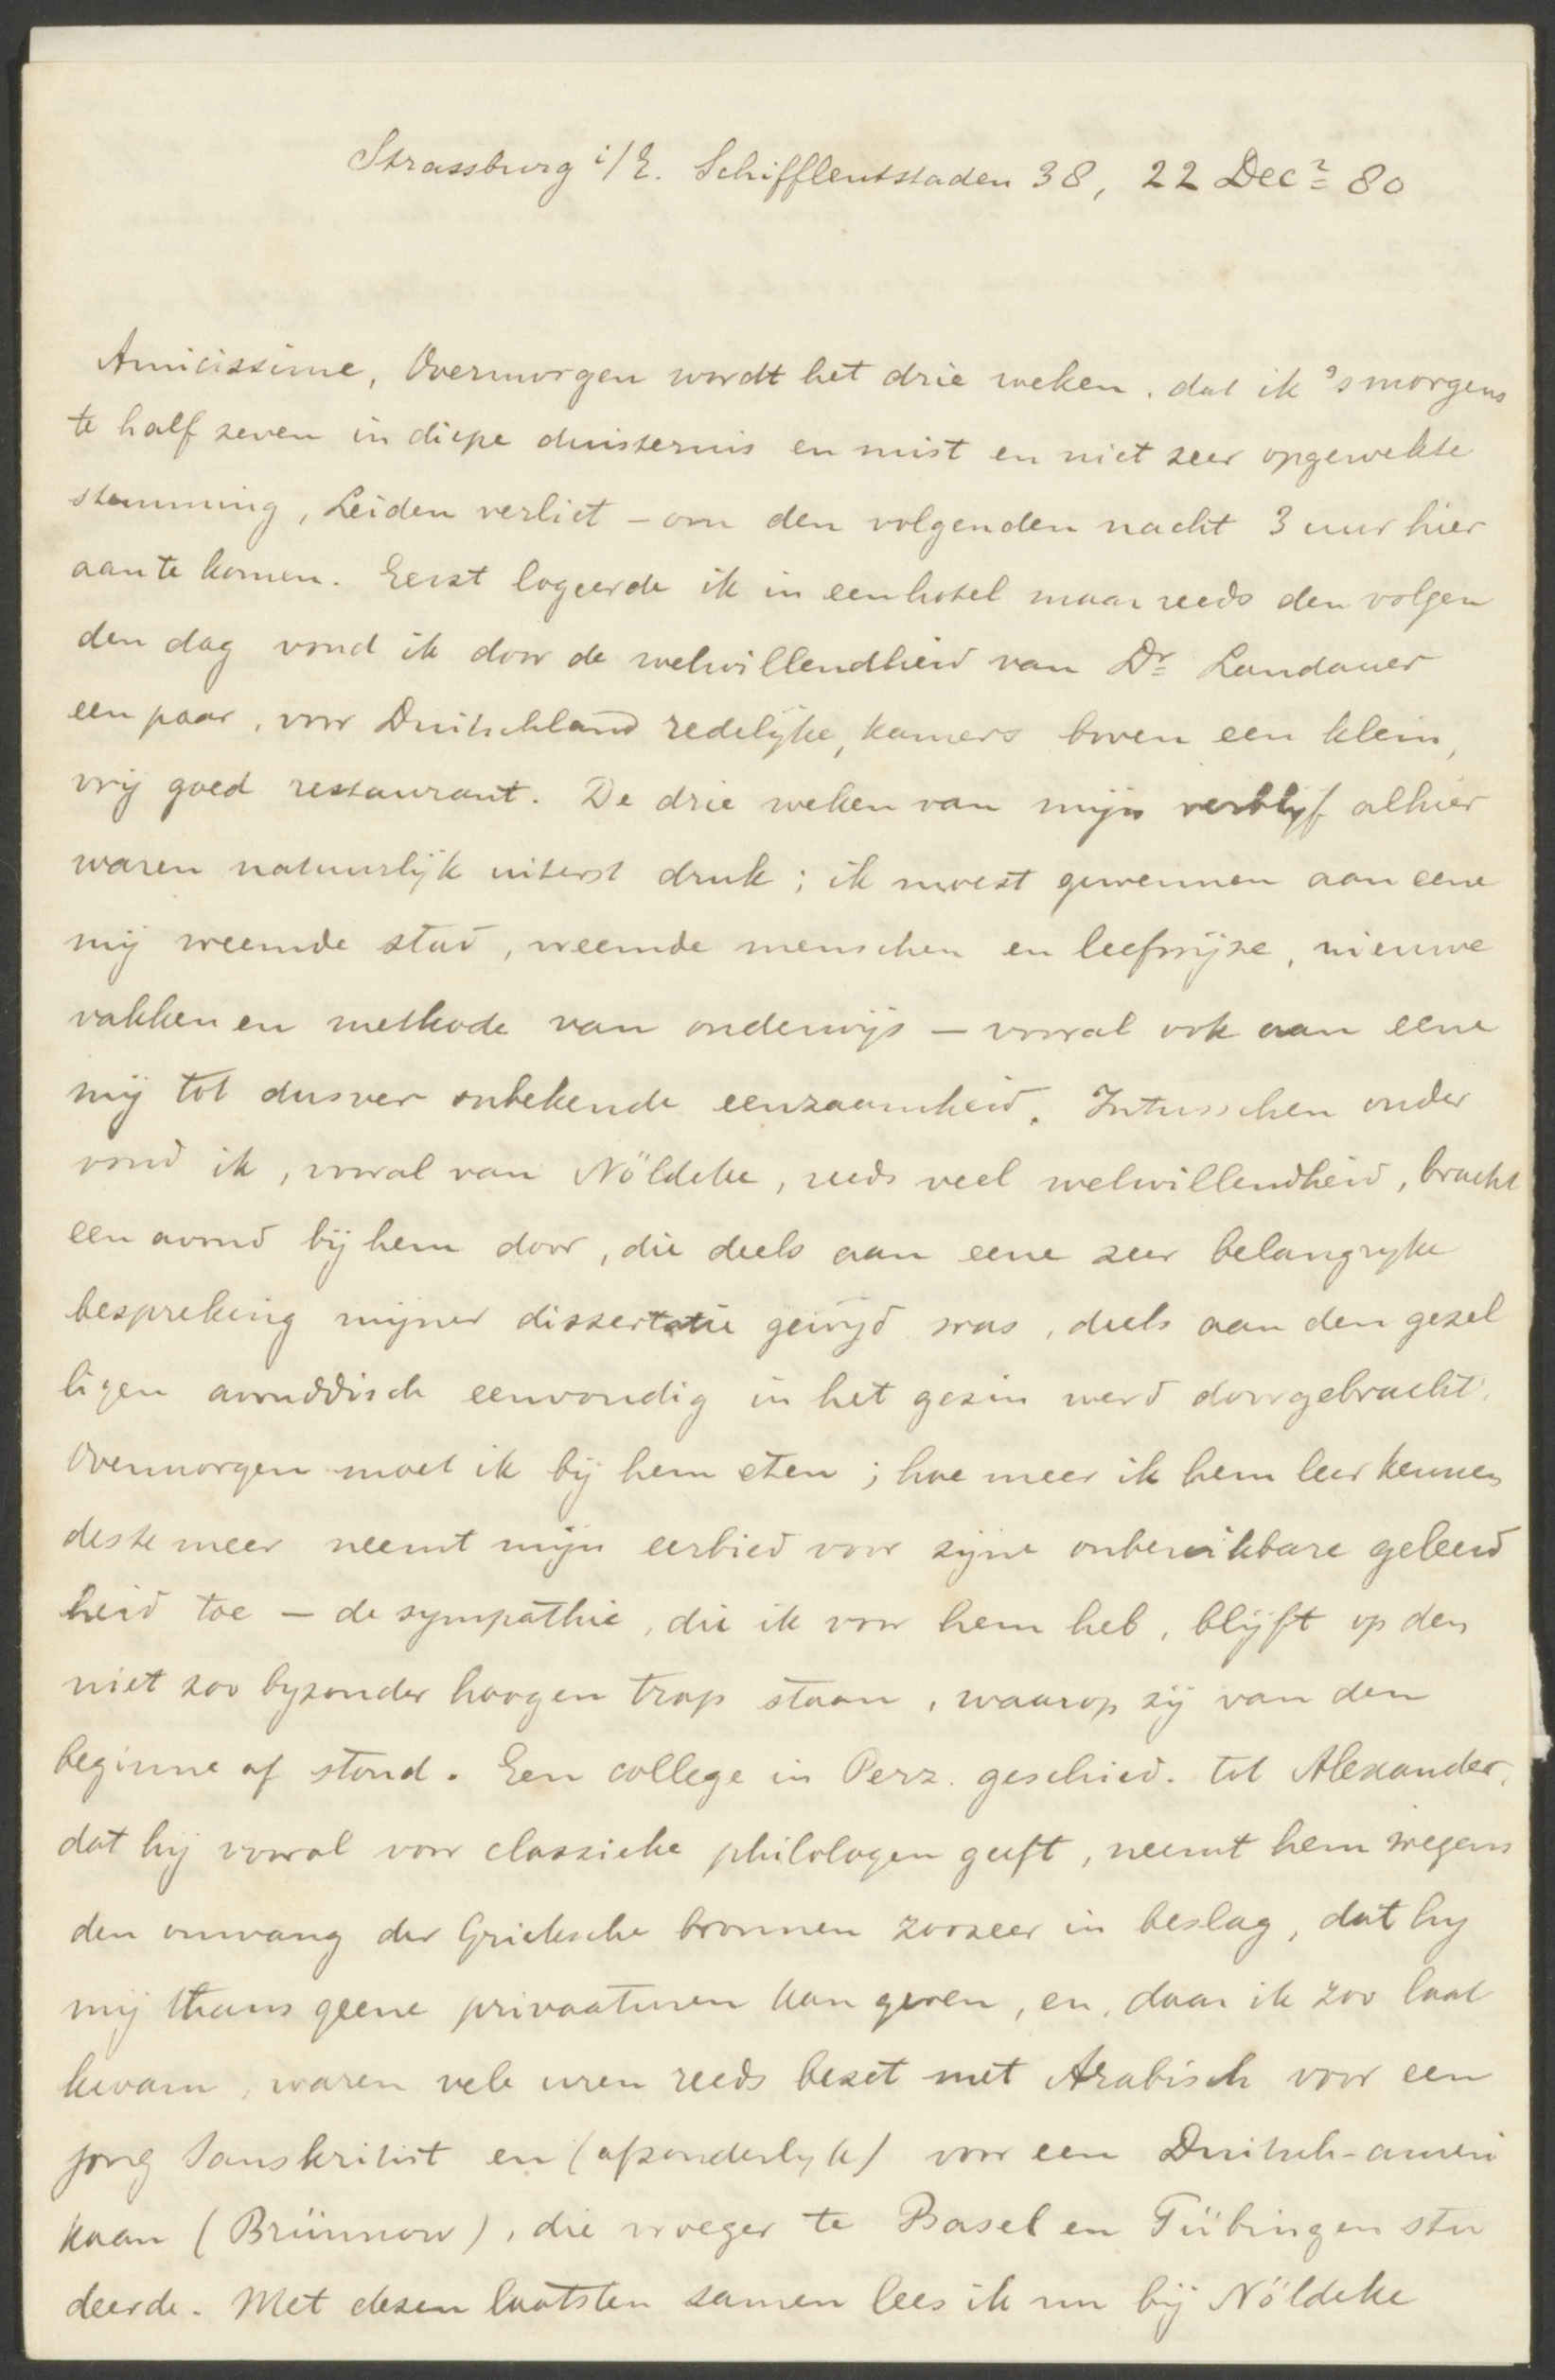 Strassburg i/E. Schifflentstaden 38, 22 Decr 80
Amicissime, Overmorgen wordt het drie weken, dat ik 's morgens
te half zeven in diepe duisternis en mist en niet zeer opgewekte
stemming, Leiden verliet – om den volgenden nacht 3 uur hier
aan te komen. Eerst logeerde ik in een hotel maar reeds den volgen
den dag vond ik door de welwillendheid van Dr Landauer
een paar, voor Duitschland redelijke, kamers boven een klein,
vrij goed restaurant. De drie weken van mijn verblijf alhier
waren natuurlijk uiterst druk; ik moest gewennen aan eene
mij vreemde stad, vreemde menschen en leefwijze, nieuwe
vakken en methode van onderwijs – vooral ook aan eene
mij tot dusver onbekende eenzaamheid. Intusschen onder
vond ik, vooral van Nöldeke, reeds veel welwillendheid, bracht
een avond bij hem door, die deels aan eene zeer belangryke
bespreking mijner dissertatie gewijd was, deels aan den gezel
ligen avonddisch eenvoudig in het gezin werd doorgebracht.
Overmorgen moet ik bij hem eten; hoe meer ik hem leer kennen
deste meer neemt mijn eerbied voor zijne onbereikbare geleerd
heid toe – de sympathie, die ik voor hem heb, blijft op den
niet zoo byzonder hoogen trap staan, waarop zij van den
beginne af stond. Een college in Perz. geschied. tot Alexander,
dat hij vooral voor classieke philologen geeft, neemt hem wegens
den omvang der Grieksche bronnen zoozeer in beslag, dat hy
mij thans geene privaaturen kan geven, en, daar ik zoo laat
kwam, waren vele uren reeds bezet met Arabisch voor een
jong Sanskritist en (afzonderlyk) voor een Duitsch-ameri
kaan (Brünnow), die vroeger te Basel en Tübingen stu
deerde. Met dezen laatsten samen lees ik nu bij Nöldeke